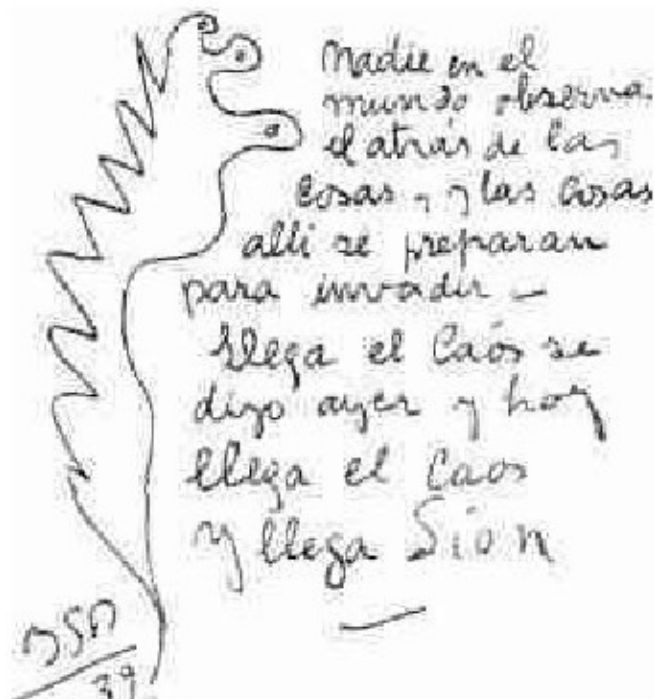 Nadie en el
mundo observa
el atrás de las
cosas - y las cosas
alli se preparan
para invadir -
Llega el Caos se
dijo ayer y hoy
llega el Caos
y llega Sion
BSP
39